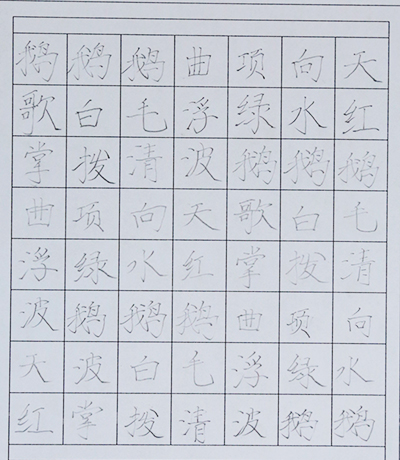 鹅鹅鹅曲项向天
歌白毛浮绿水红
掌拨清波鹅鹅鹅
曲项向天歌白毛
浮绿水红掌拨清
波鹅鹅鹅曲项向
天波白毛浮绿水
红掌拨清波鹅鹅